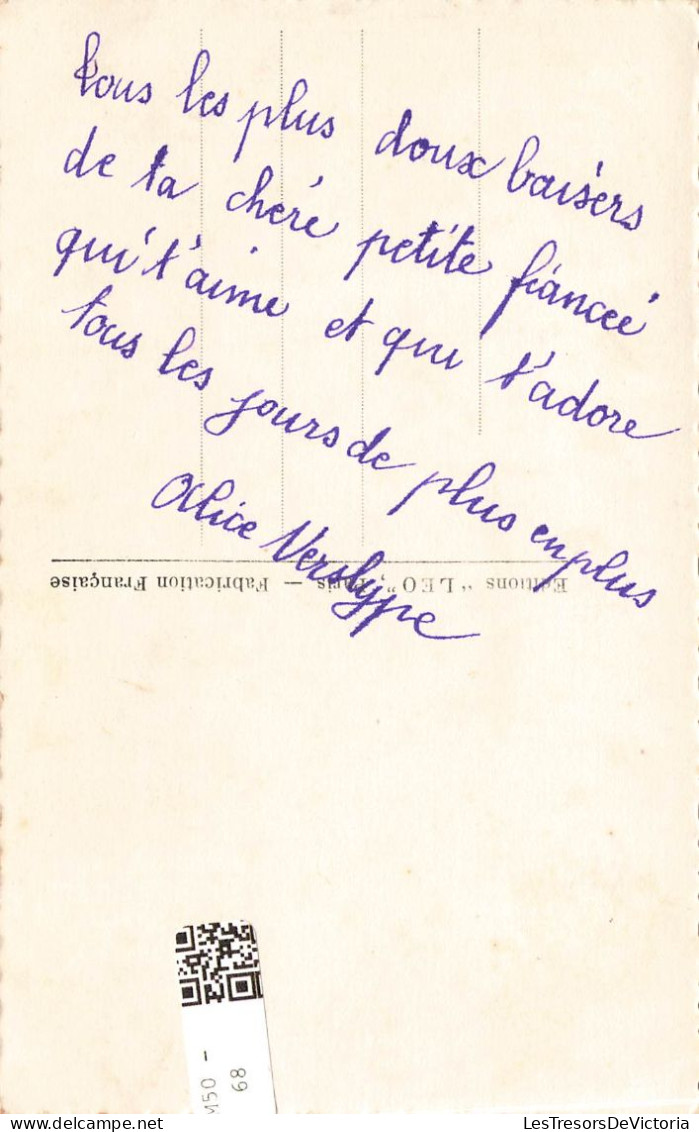 tous les plus doux baisérs
de ta cheré petité fiánceé
qui t'aime et qui t'adore
tous les jours de plus en plus
Alice Verslype
Editions "LEO", Paris — Fabrication Française
M50 -
68
LesTresorsDeVictoria